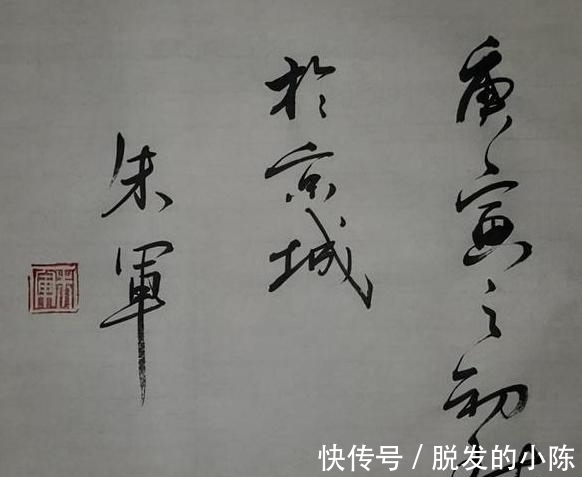 庚寅之初
於京城
朱軍
朱軍
快传号 / 脱发的小陈